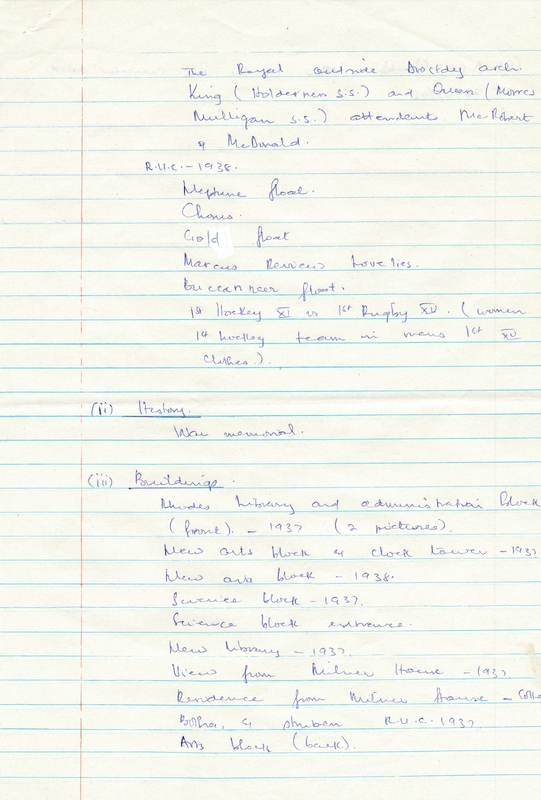 The Royal outside Drostdy arch.
King (Holderness S.S.) and Queen (Morris
Mulligan S.S.) attendent McRobert
& McDonald.
R.U.C. - 1938.
Neptune float.
Chorus.
Gold float
Marcus Lovelies.
Buccaneer float.
1st Hockey XI vs 1st Rugby XV. (women
1st hockey team in mens 1st XV
clothes.).
(ii) History.
War memorial.
(iii) Buildings.
Rhodes Library and administration block
(front). - 1937 (2 pictures).
New arts block & clock tower - 1937
New arts block - 1938.
Science block - 1937.
Science block entrance.
New library - 1937.
View from Milner House - 1937
Residence from Milner House - Colle
Botha, & Struben R.U.C. 1937
Arts block (back).